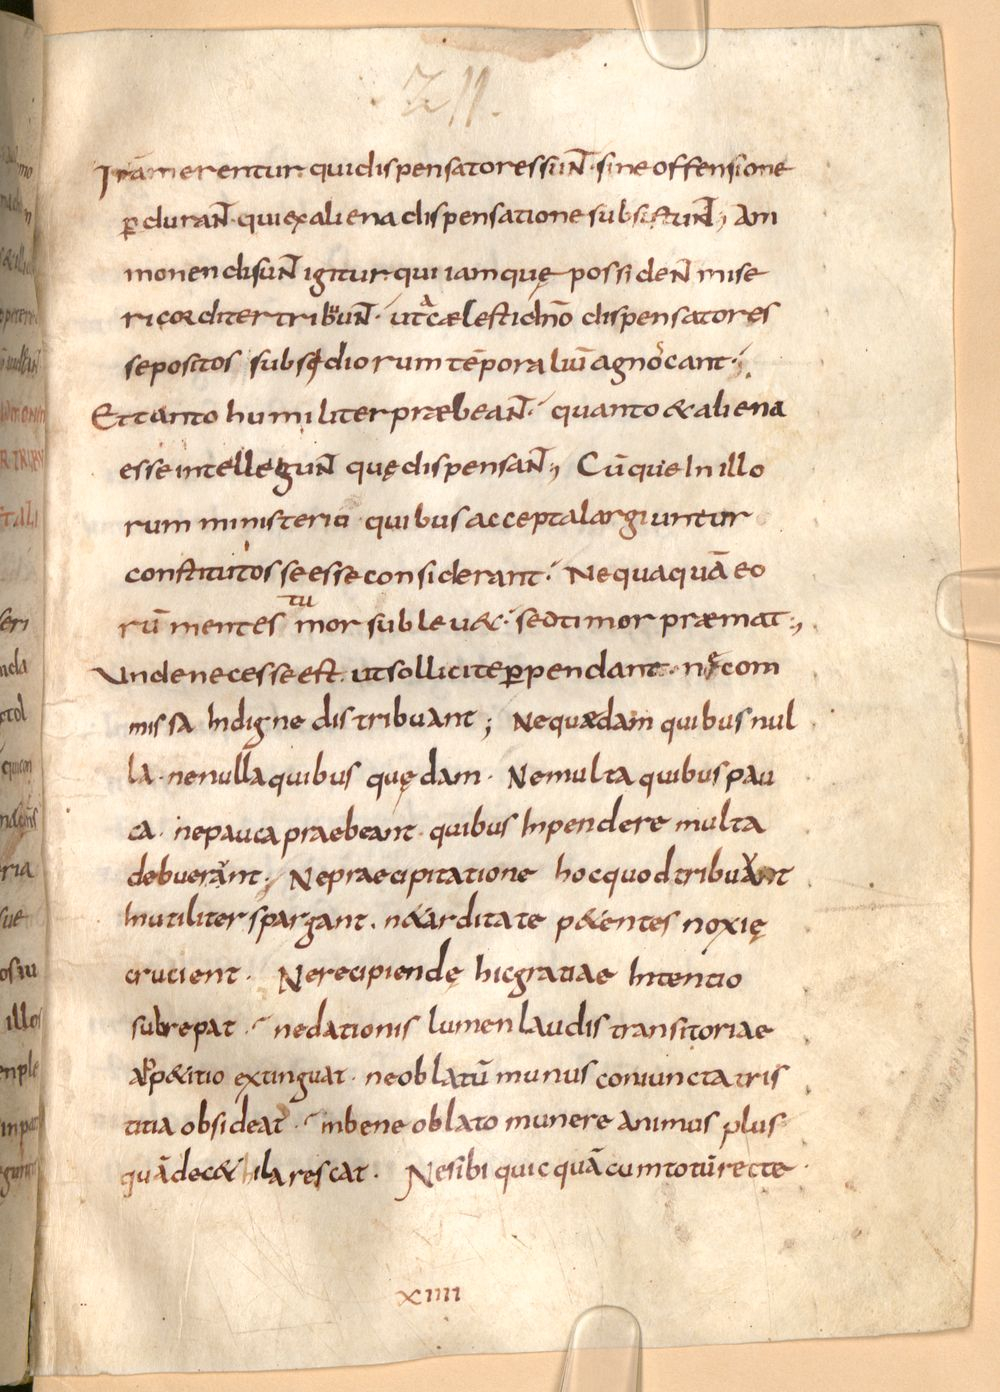 211.
Irāmerentur quidispensatoressun̄t · sine offensione
ꝑduran̄t · quiexaliena dispensatione subsistun̄t; Am
monendisun̄t igitur qui iamquę possiden̄t mise
ricorditer tribuun̄t · ut a cælesti dn̄o dispensatores
sepositos subsidiorum tēporaliū agnoscant ·;
Et tanto humiliter præbean̄t · quanto & aliena
esse intellegun̄t quę dispensan̄t; Cūque In illo
rum ministerio quibus accepta largiuntur
constitutos se esse considerant · Nequaquā eo
rū mentes tumor subleu& · sed timor præmat ·;
Unde necesse est · ut sollicite ꝑpendant · ne com
missa Indigne distribuant ; Ne quædam quibus nul
la · ne nulla quibus quędam · Ne multa quibus pau
ca · ne pauca praebeant · quibus Inpendere multa
debuerant · Ne praecipitatione hoc quod tribuunt
Inutiliter spargant · ne tarditate p&entes noxię
crucient · Ne recipiendę hic gratiae Intentio
subrepat · ne dationis lumen laudis transitoriae
app&itio extinguat · ne oblatū munus coniuncta tris
titia obsideat · ne In bene oblato munere animus plus
quā dec& hilarescat · Ne sibi quicquā cum totū recte ·
xiiii